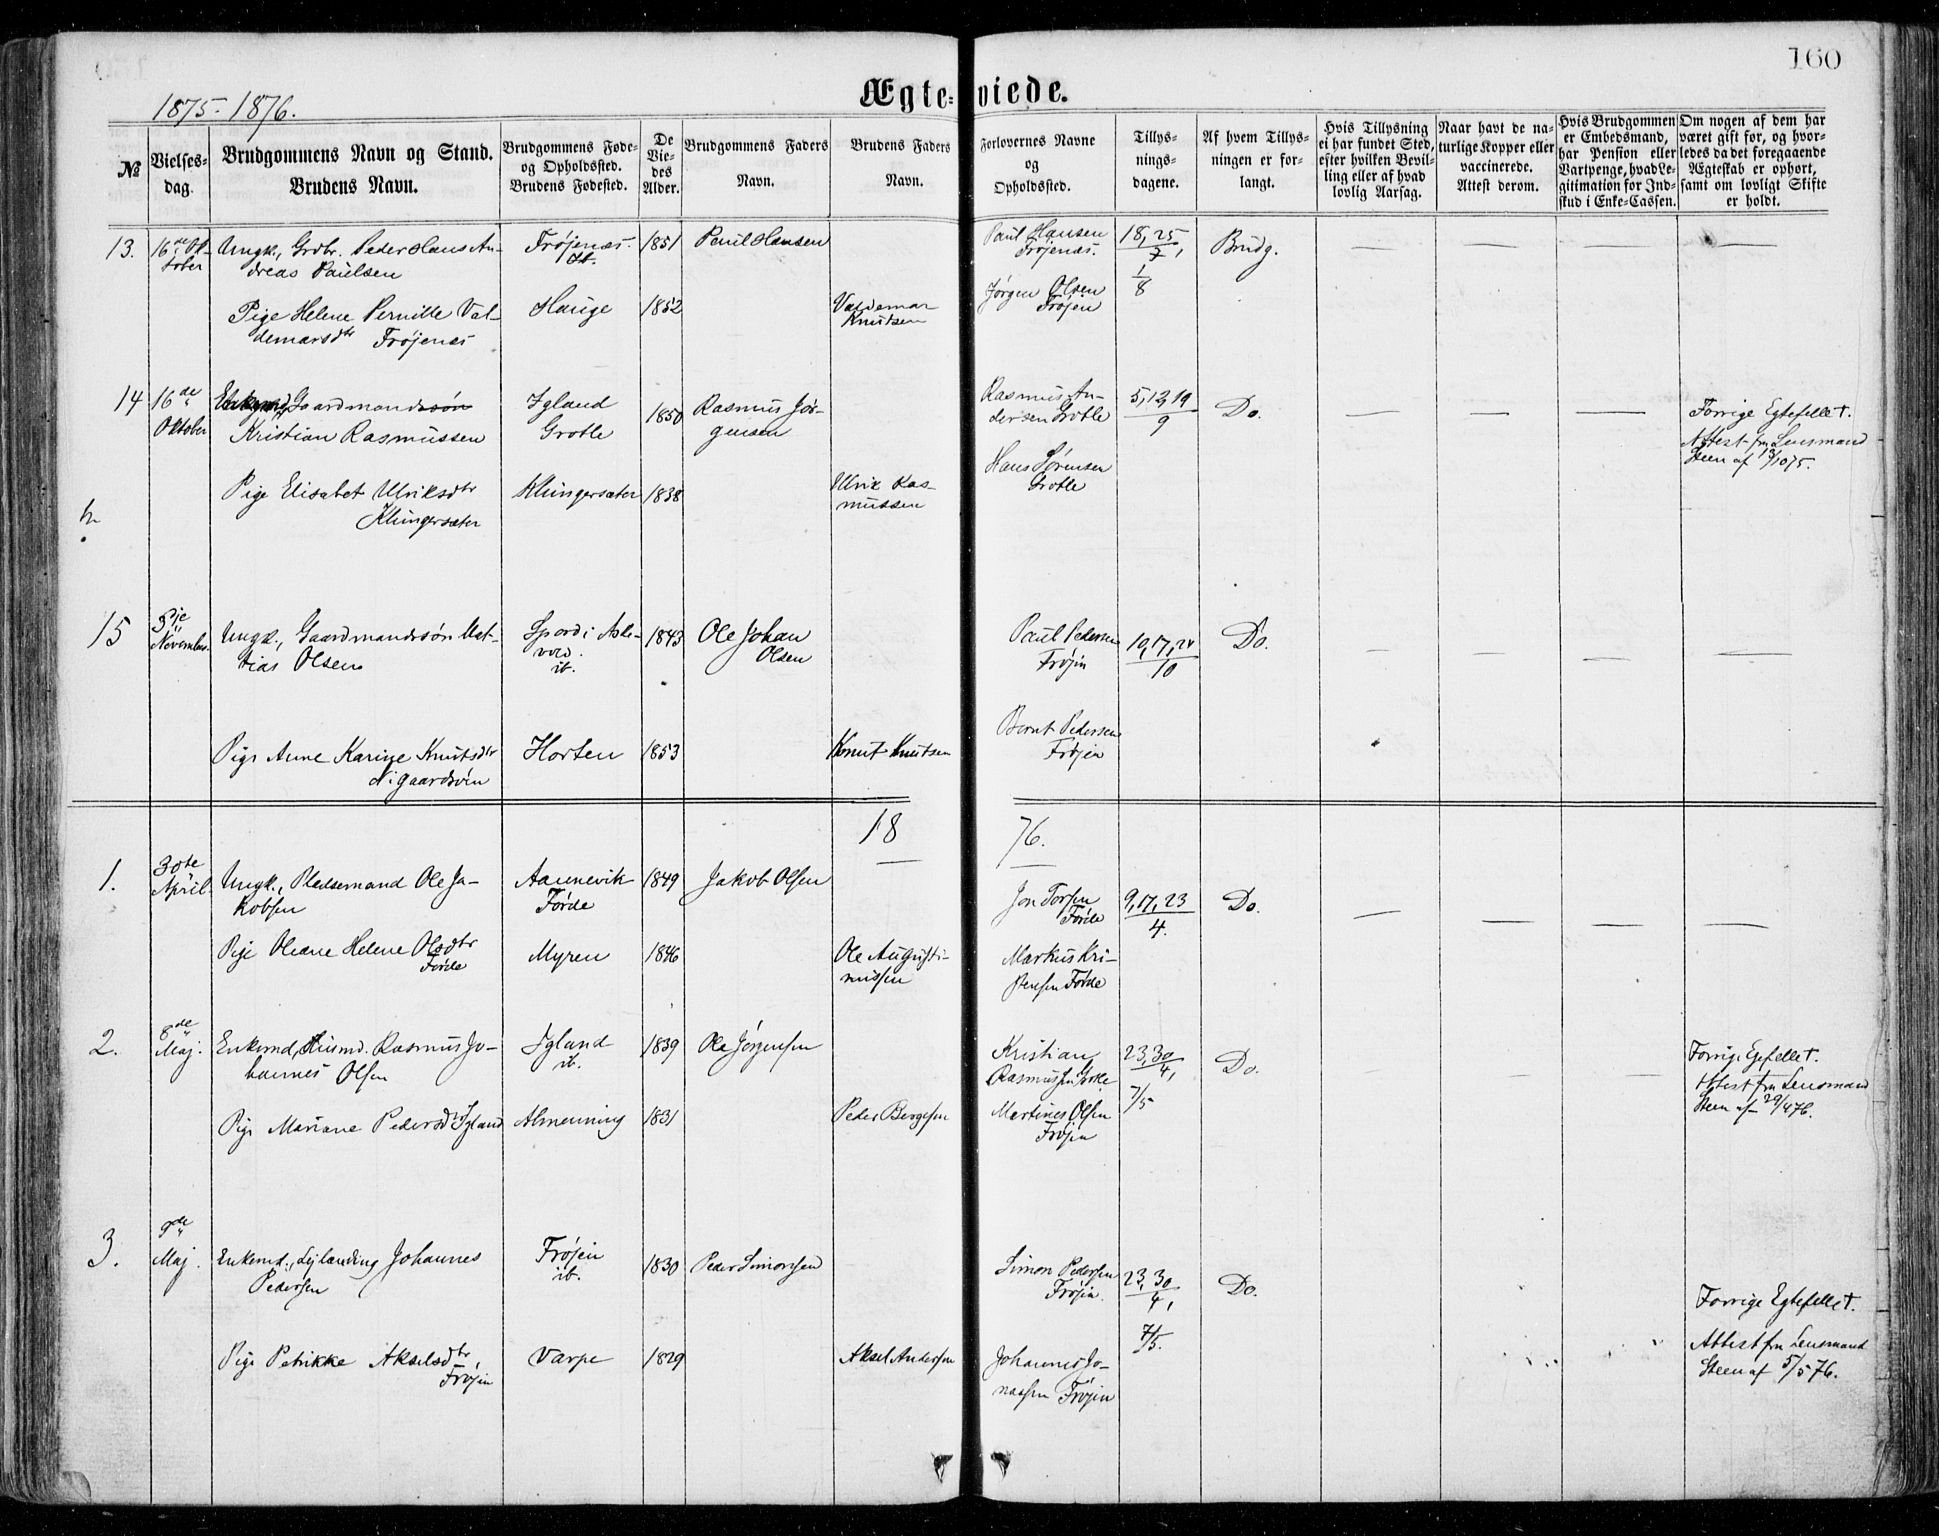 160
1875-1876.
Ægteviede.
№
Vielses-
dag.
Brudgommens Navn og Stand.
Brudens Navn.
Brudgommens Føde-
og Opholdssted.
Brudens Fødested.
De
Vie-
des
Alder.
Brudgommens Faders
Navn.
Brudens Faders
Navn.
Forlovernes Navne
og
Opholdssted.
Tillys-
nings-
dagene.
Af hvem Tillys-
ningen er for-
langt.
Hvis Tillysning
ei har fundet Sted,
efter hvilken Bevil-
ling eller af hvad
lovlig Aarsag.
Naar havt de na-
turlige Kopper eller
vaccinerede.
Attest derom.
Hvis Brudgommen
er Embedsmand,
har Pension eller
Vartpenge, hvad Le-
gitimation for Ind-
skud i Enke-Cassen.
Om nogen af dem har
været gift før, og hvor-
ledes da det foregaaende
Ægteskab er ophørt,
samt om lovligt Skifte
er holdt.
13.
16de Ok-
tober
Ungk., Grdbr. Peder Hans An-
dreas Paulsen
Frøjenæs.
ib.
1851
Paul Hansen
Paul Hansen
Frøjenæs.
18, 25
7,
1
8
Brudg.
Pige Helene Pernille Val-
demarsdtr Frøjenæs
Hauge
1852
Valdemar
Knutsen
Jørgen Olsen
Frøjen
14
16de
Oktober
Enkemd, Gaardmandssøn
Kristian Rasmussen
Igland
Grotle
1850
Rasmus Jør-
gensen
Rasmus An-
dersen Grotle
5, 12, 19
9
Do.
Forrige Egtefelle †.
Attest fra Lensmand
Steen af 13/10 75.
Pige Elisabet Ulriksdtr
Klungersæter
Klungersæter
1838
Ulrik Ras-
mussen
Hans Sørensen
Grotle
15
5te
November.
Ungk., Gaardmandssøn Mat-
tias Olsen
Spord i Ask-
vold.
ib.
1843
Ole Johan
Olsen
Paul Pedersen
Frøjen
10, 17, 24
10
Do.
Pige Anne Karine Knutsdtr
Nigaardsøen
Horten
1853
Knut Knutsen
Bernt Pedersen
Frøjen
18 76.
1.
30te
April.
Ungk., Pladsemand Ole Ja-
kobsen
Aannevik
Førde
1849
Jakob Olsen
Jon Torsen
Førde
9, 17, 23
4.
Do.
Pige Oleane Helene Olsdtr
Førde
Myren
1846
Ole Augusti-
nussen
Markus Kri-
stensen Førde
2.
8de
Maj.
Enkemd, Husmd. Rasmus Jo-
hannes Olsen
Igland
ib.
1839
Ole Jørgensen
Kristian
Rasmussen Grotle
23, 30
4,
7/5
Do.
Forrige Egtefelle †.
Attest fra Lensmand
Steen af 29/4 76.
Pige Mariane Pedersdtr Igland
Almenning
1831
Peder Bergesen
Martines Olsen
Frøjen
3.
9de
Maj.
Enkemd., Lejlænding Johannes
Pedersen
Frøjen
ib.
1830
Peder Simonsen
Simon Pedersen
Frøjen.
23, 30
4,
7/5.
Do.
Forrige Egtefelle †.
Attest fra Lensmand
Steen af 5/5 76.
Pige Petrikke Akselsdtr
Frøjen
Varpe
1829
Aksel Andersen
Johannes Jo-
nassen Frøjen